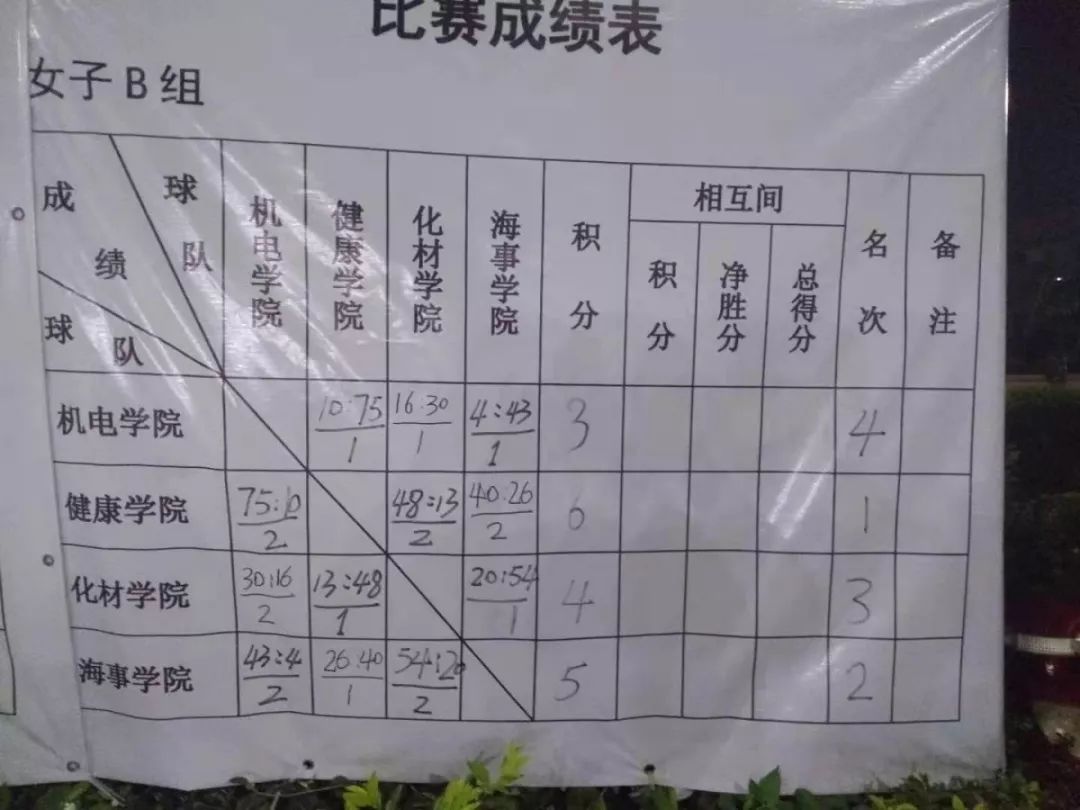 比赛成绩表
女子 B 组
成绩 球队 球队 机电学院 健康学院 化材学院 海事学院 积分 相互间 积分 净胜分 总得分 名次 备注
机电学院 10:75 1 16:30 1 4:43 1 3 4
健康学院 75:10 2 48:13 2 40:26 2 6 1
化材学院 30:16 2 13:48 1 20:54 1 4 3
海事学院 43:4 2 26:40 1 54:20 2 5 2